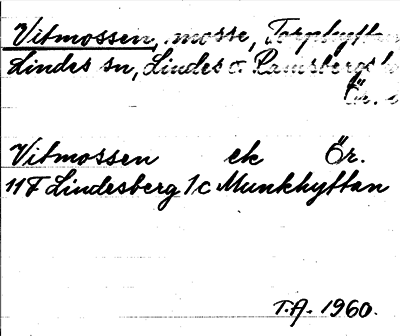 Vitmossen, mosse, Torphyttan
Lindes sn, Lindes o. Ramsbergs
Ör.
Vitmossen ek Ör.
11F Lindesberg 1c Munkhyttan
T.A. 1960.